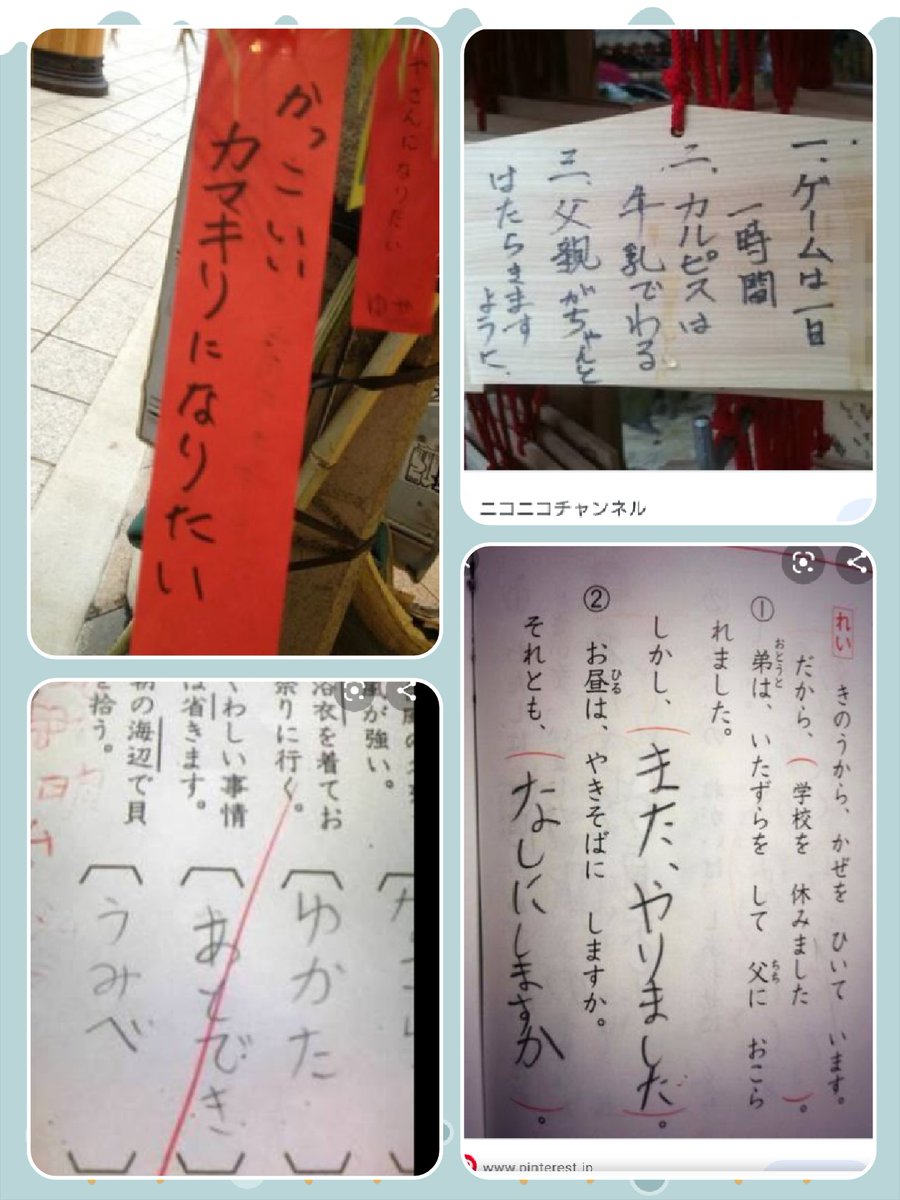 やさんになりたい
かっこいい
カマキリになりたい
一、ゲームは一日
一時間
二、カルピスは
牛乳でわる
三、父親がちゃんと
はたらきます
ように、
ニコニコチャンネル
が強い。
浴衣を着てお
祭りに行く。
くわしい事情
は省きます。
の海辺で貝
を拾う。
ゆかた
あとでき
うみべ
れい きのうから、かぜを ひいて います。
だから、(学校を 休みました)。
① 弟は、いたずらを して 父に おこら
れました。
しかし、(また、やりました)。
② お昼は、やきそばに しますか。
それとも、(なしにしますか)。
おとうと
ちち
ひる
www.pinterest.jp